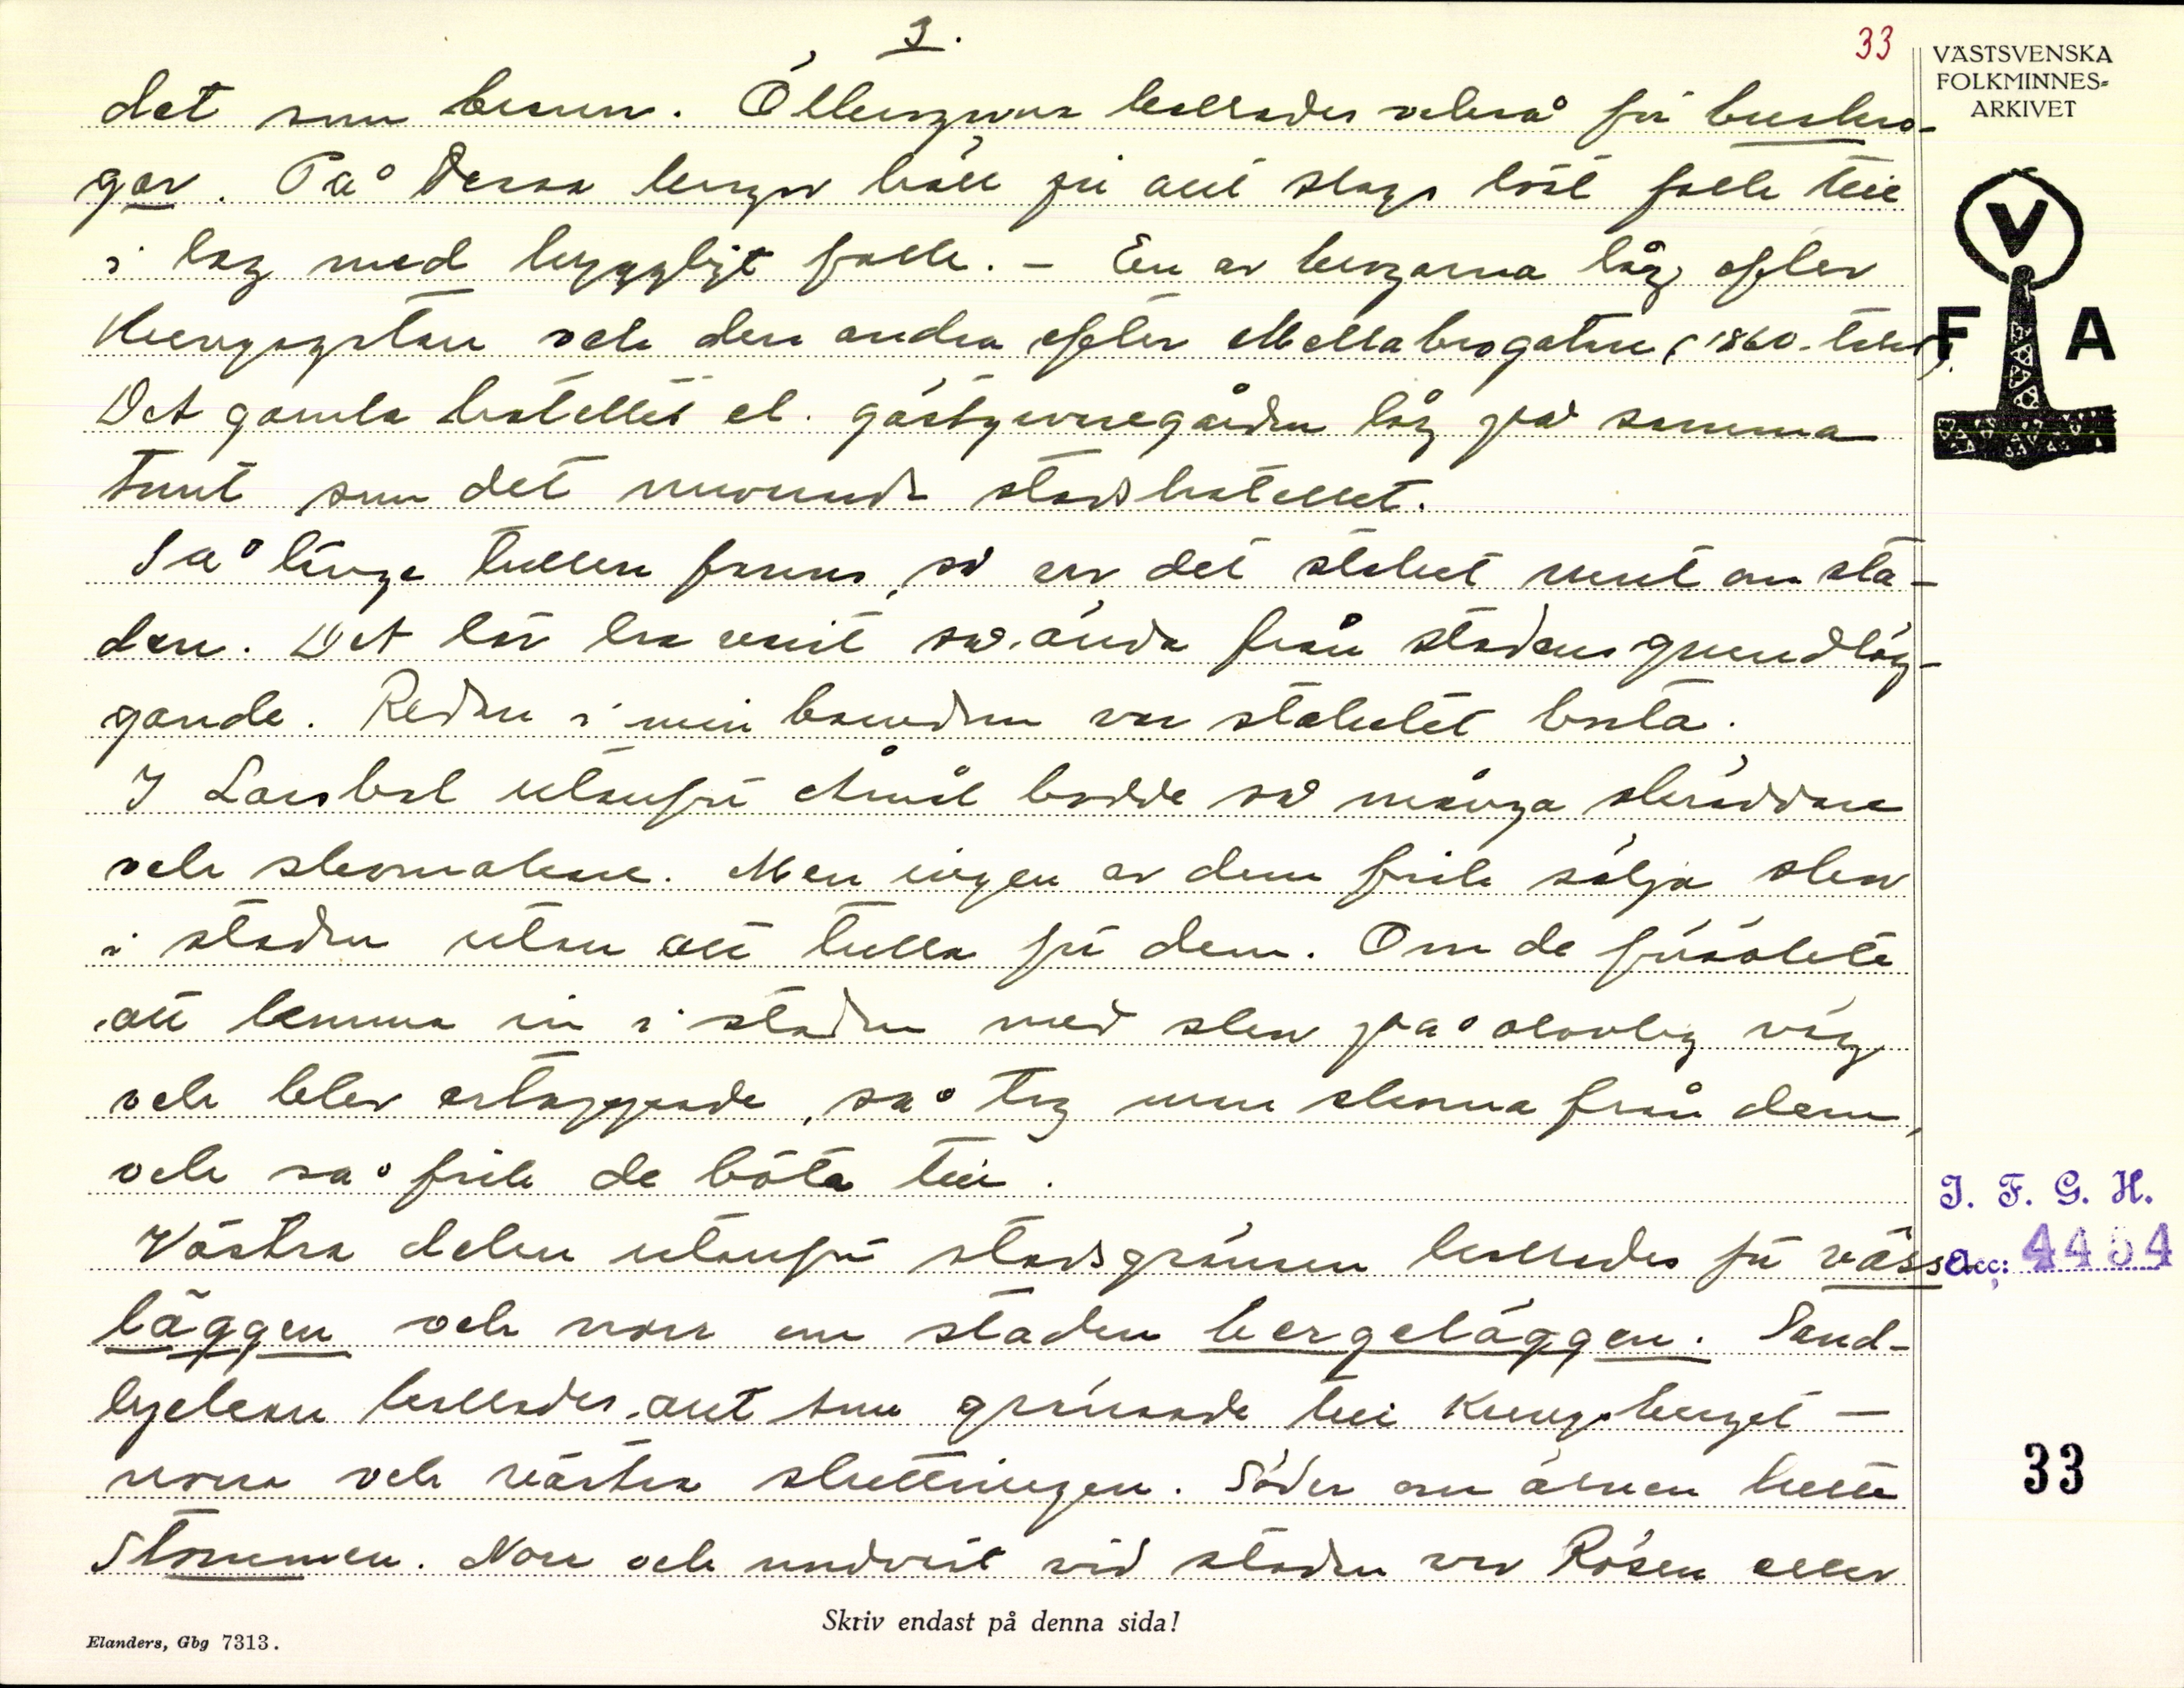 3.
33
VÄSTSVENSKA
FOLKMINNES-
ARKIVET
det som brann. Ölkrogarna kallades också för buskro-
gar. På dessa krogar höll ju allt slags löst folk till
i lag med hyggligt folk. – En av krogarna låg efter
Kungsgatan och den andra efter Mellabrogatan (1860-talet).
Det gamla hotellet el. gästgivaregården låg på samma
tomt som det nuvarande stadshotellet.
Så länge tullen fanns, så var det staket runt om sta-
den. Det lär ha varit så ända från stadens grundläg-
gande. Redan i min barndom var staketet borta.
I Larsbol utanför Åmål bodde så många skräddare
och skomakare. Men ingen av dem fick sälja skor
i staden utan att tulla för dem. Om de försökte
att komma in i staden med skor på olovlig väg
och blev ertappade, så tog man skorna från dem,
och så fick de böta till.
Västra delen utanför stadsgränsen kallades för väss-
läggen och norr om staden bergeläggen. Sand-
lyckan kallades allt som gränsade till Kungsberget –
norra och västra sluttningen. Söder om älven hette
Stommen. Norr och nordväst vid staden var Rösen eller
V
F A
I. F. G. H.
Acc: 4454
33
Skriv endast på denna sida!
Elanders, Gbg 7313.